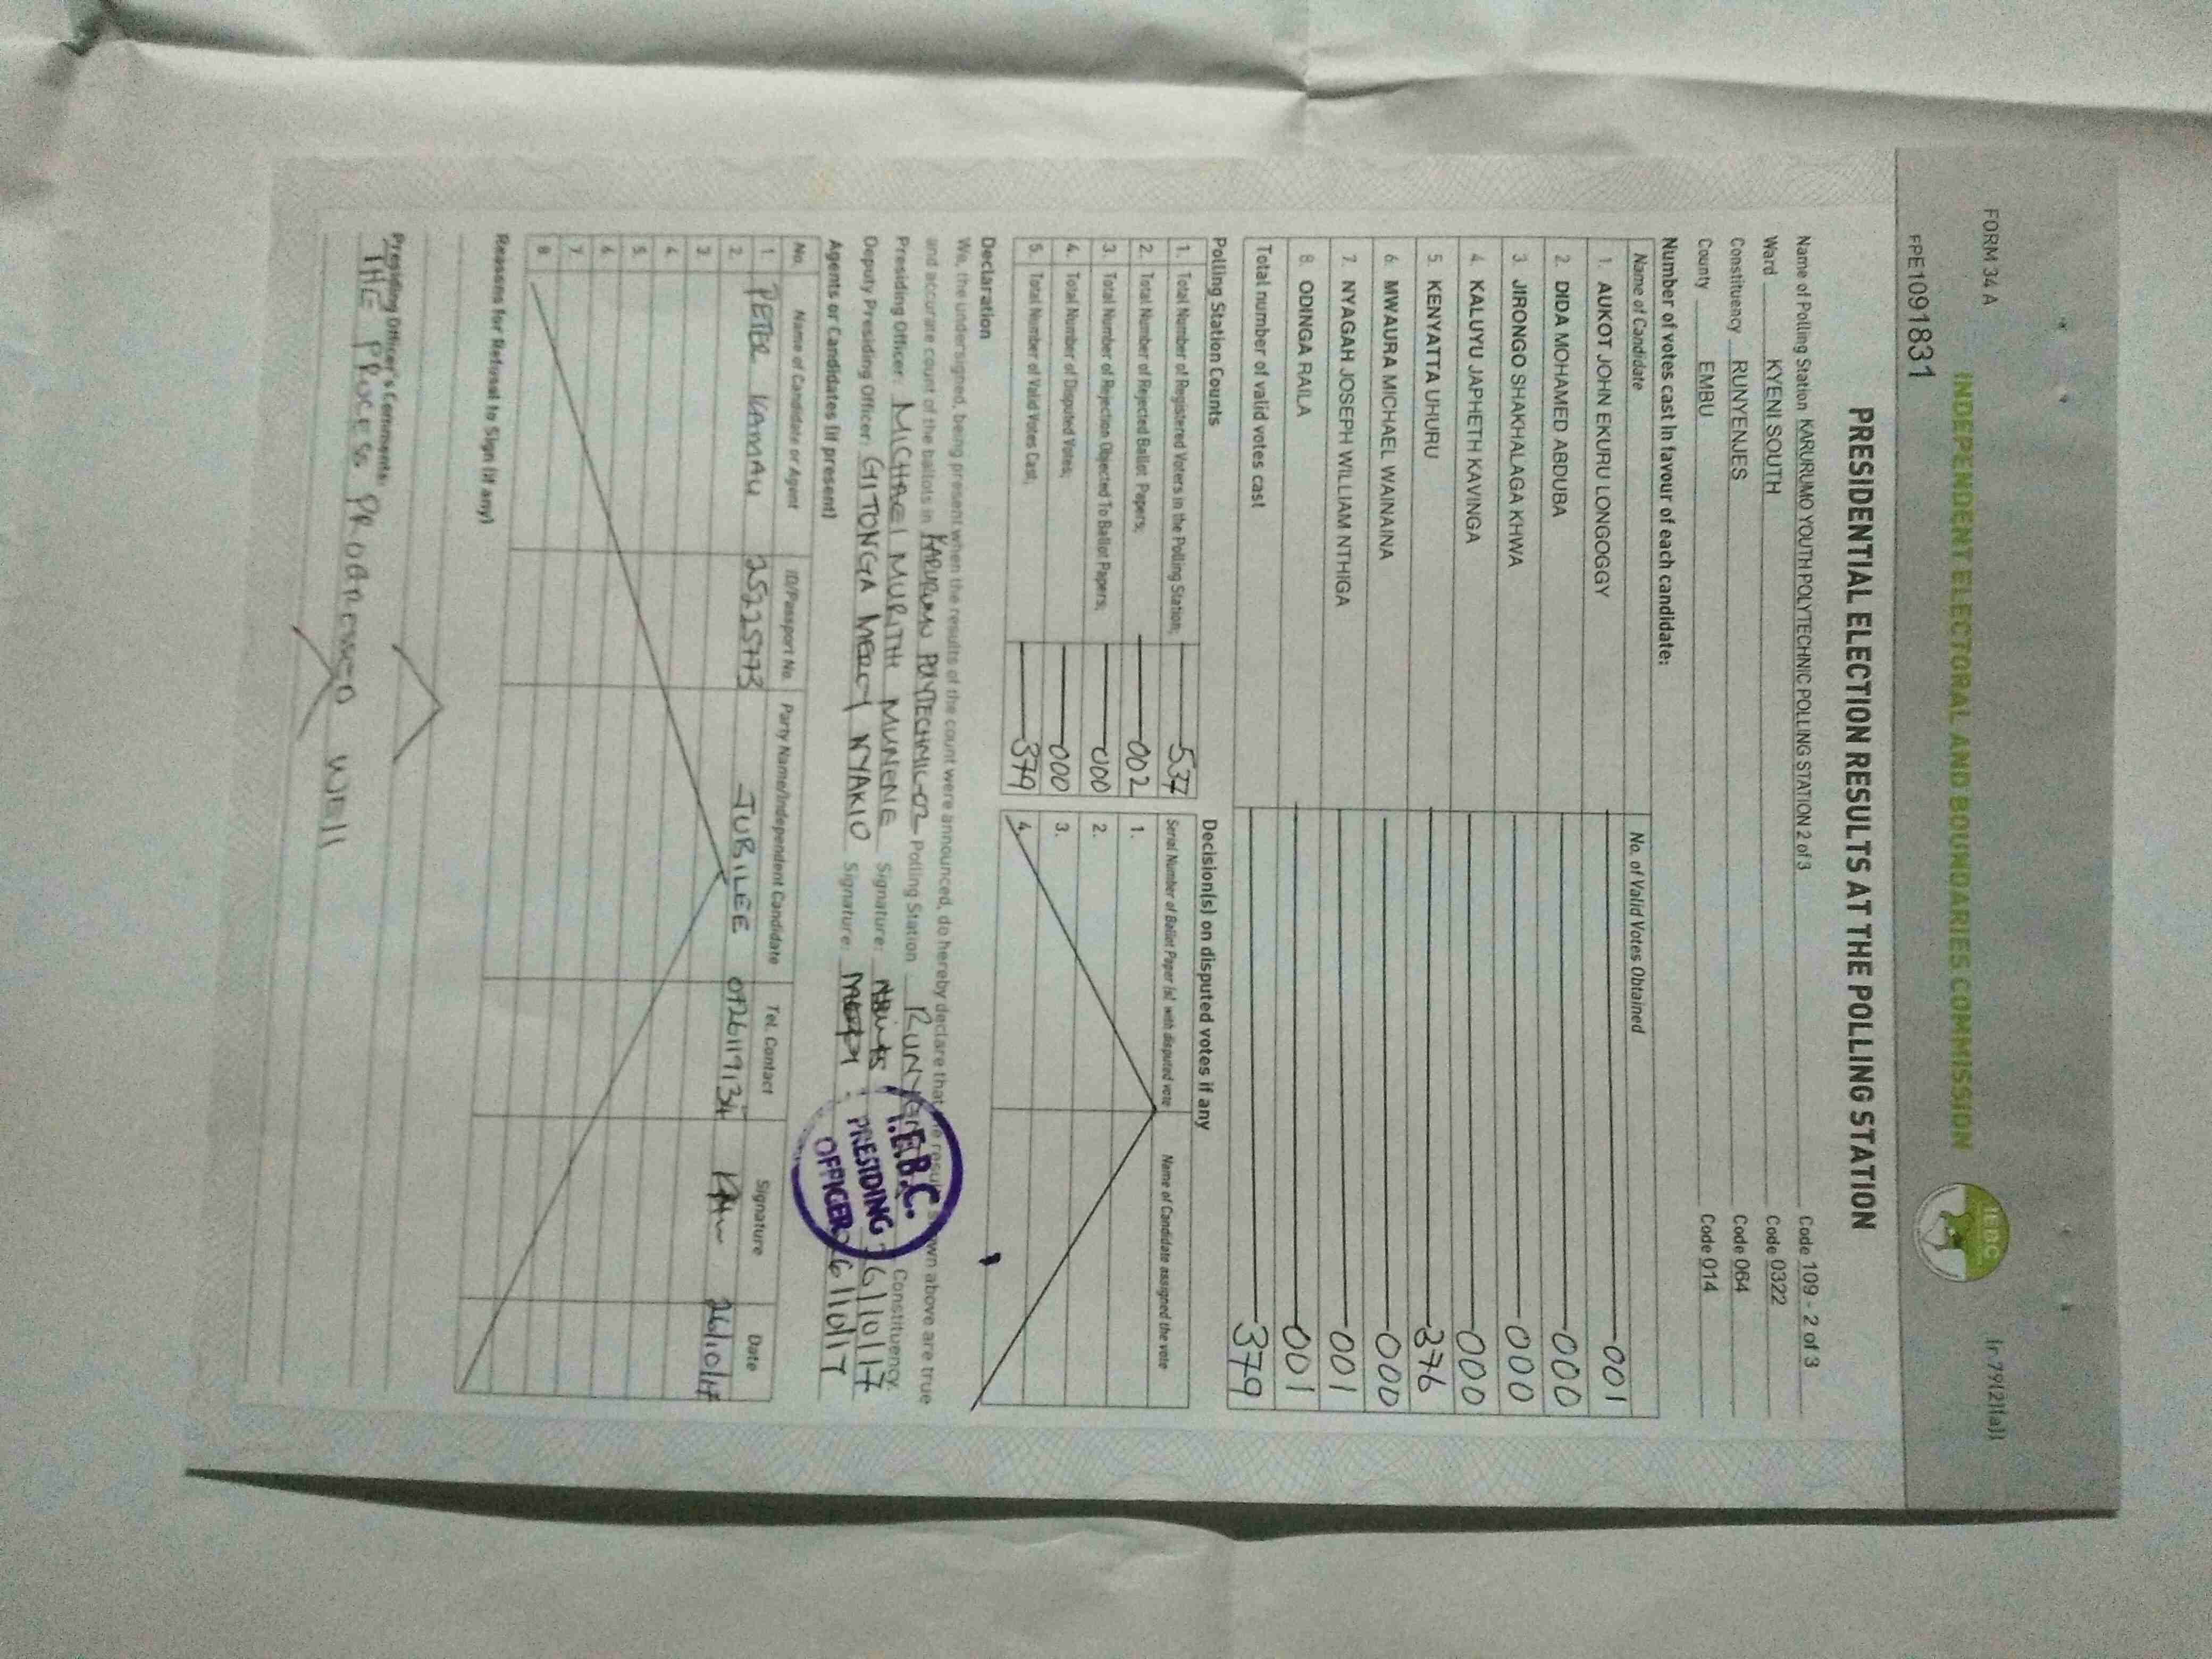 FORM 34 A (r.79(2)(a))
INDEPENDENT ELECTORAL AND BOUNDARIES COMMISSION
IEBC
FPE1091831
PRESIDENTIAL ELECTION RESULTS AT THE POLLING STATION
Name of Polling Station KARURUMO YOUTH POLYTECHNIC POLLING STATION 2 of 3 Code 109 - 2 of 3
Ward KYENI SOUTH Code 0322
Constituency RUNYENJES Code 064
County EMBU Code 014
Number of votes cast in favour of each candidate:
Name of Candidate No. of Valid Votes Obtained
1. AUKOT JOHN EKURU LONGOGGY 001
2. DIDA MOHAMED ABDUBA 000
3. JIRONGO SHAKHALAGA KHWA 000
4. KALUYU JAPHETH KAVINGA 000
5. KENYATTA UHURU 376
6. MWAURA MICHAEL WAINAINA 000
7. NYAGAH JOSEPH WILLIAM NTHIGA 001
8. ODINGA RAILA 001
Total number of valid votes cast 379
Polling Station Counts
1. Total Number of Registered Voters in the Polling Station; 537
2. Total Number of Rejected Ballot Papers; 002
3. Total Number of Rejection Objected To Ballot Papers; 000
4. Total Number of Disputed Votes; 000
5. Total Number of Valid Votes Cast; 379
Decision(s) on disputed votes if any
Serial Number of Ballot Paper (s) with disputed vote Name of Candidate assigned the vote
1.
2.
3.
4.
Declaration
We, the undersigned, being present when the results of the count were announced, do hereby declare that the results shown above are true
and accurate count of the ballots in KARURUMO POLYTECHNIC-02 Polling Station Constituency.
Presiding Officer: MICHAEL MURITHI MUNENE Signature: 26/10/17
Deputy Presiding Officer: GITONGA MERCY NYAKIO Signature: 26/10/17
I.E.B.C.
PRESIDING
OFFICER
Agents or Candidates (if present)
No. Name of Candidate or Agent ID/Passport No. Party Name/Independent Candidate Tel. Contact Signature Date
1. PETER KAMAU 25225773 JUBILEE 0726119134 26/10/17
2.
3
4.
5
6
7
8
Reasons for Refusal to Sign (if any)
Presiding Officer's Comments:
THE PROCESS PROGRESSED WELL